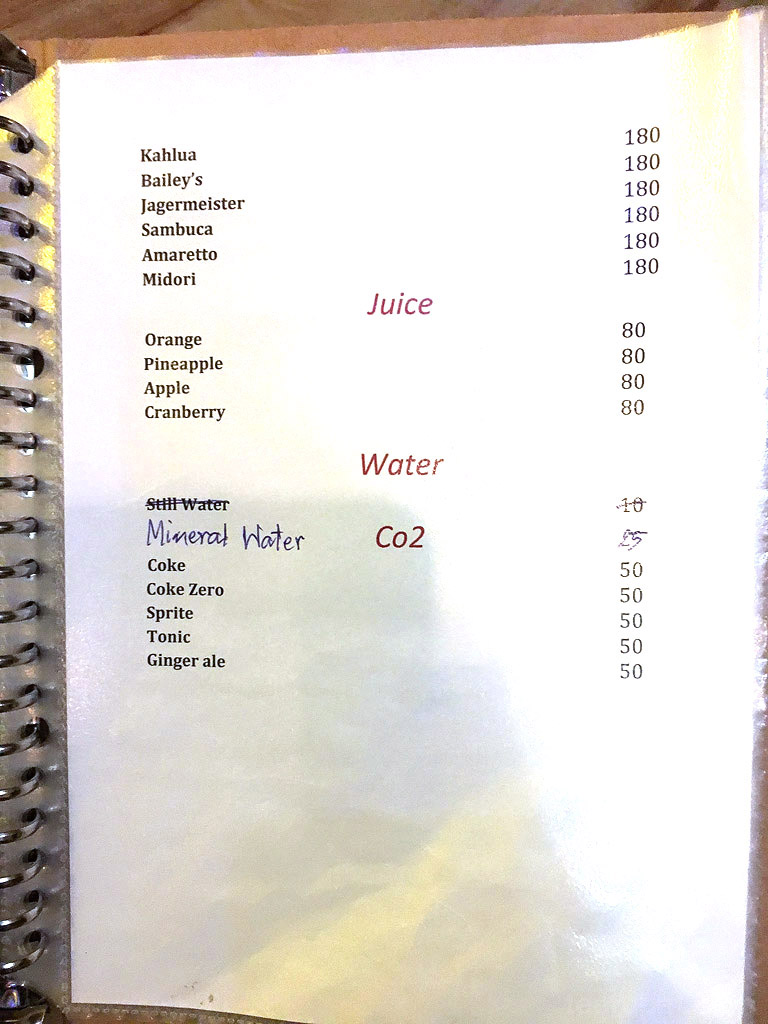 Kahlua 180
Bailey's 180
Jagermeister 180
Sambuca 180
Amaretto 180
Midori 180
Juice
Orange 80
Pineapple 80
Apple 80
Cranberry 80
Water
Still Water 10
Mineral Water 25
Co2
Coke 50
Coke Zero 50
Sprite 50
Tonic 50
Ginger ale 50